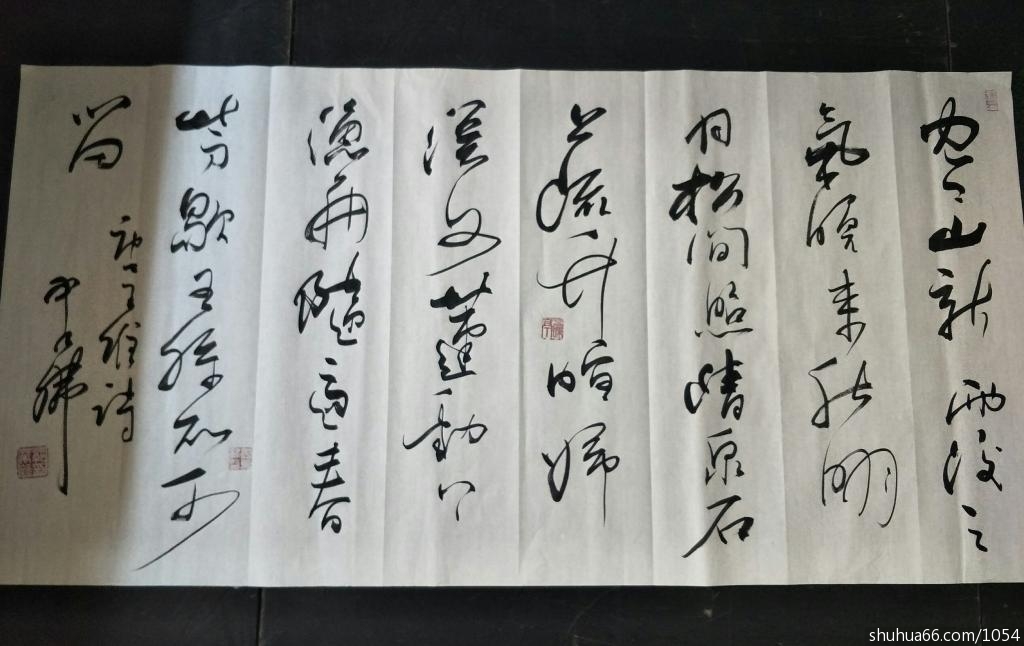 空山新雨後天
氣晚来秋明
月松間照清泉石
上流竹喧歸
浣女蓮動下
漁舟隨意春
芳歇王孫自可
留
王維詩
shuhua66.com/1054